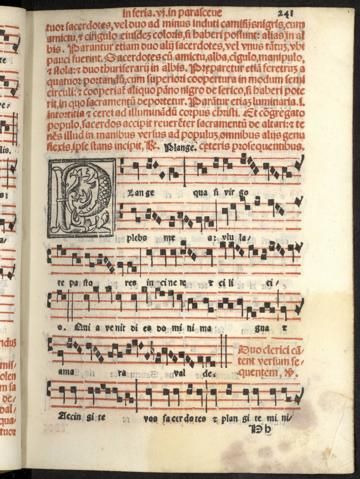 In feria. vj. in parasceue 241
tuor sacerdotes, vel duo ad minus induti camisijs nigris, cum
amictu, & cingulo, eiusdez coloris, si haberi possunt: alias in al
bis. Parantur etiam duo alij sacerdotes, vel vnus tātuz, vbi
pauci fuerint. Sacerdotes cū amictu, alba, cigulo, manipulo,
& stola: & duo thuriferarij in albis. Preparetur etiā feretruz a
quatuor portandū, cum superiori coopertura in modum semi
circuli: & cooperiat aliquo pāno nigro de serico, si haberi pote
rit, in quo sacramentū deportetur. Parātur etiaz luminaria. s.
intortitia & cerei ad illuminādū corpus christi. Et cōgregato
populo, sacerdos accipit reuerēter sacramentū de altari: & te
nēs illud in manibus versus ad populuz, omnibus alijs genu
flexis, ipse stans incipit, R. Plange. ceteris prosequentibus.
P
Lange qua si vir go
plebs me a: vlu la/
te pasto res in ci ne re & ci li ci/
o. Qui a ve nit di es do mi ni ma gna &
ama ra val de:
Duo clerici cā
tent versum se/
quentem, V.
Accin gi te vos sa cer do tes & plan gi te mi ni/
Hh